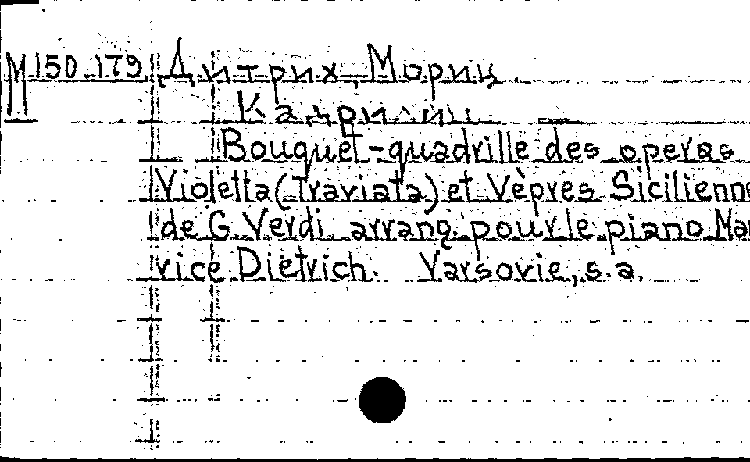 М 150.179 Дитрих, Мориц.
Кадрилии
Bouquet-quadrille des operas
Violetta (Traviata) et Vèpres Sicilienne
de G. Verdi arrang. pour le piano Mau
rice Dietrich. Varsovie, s.a.